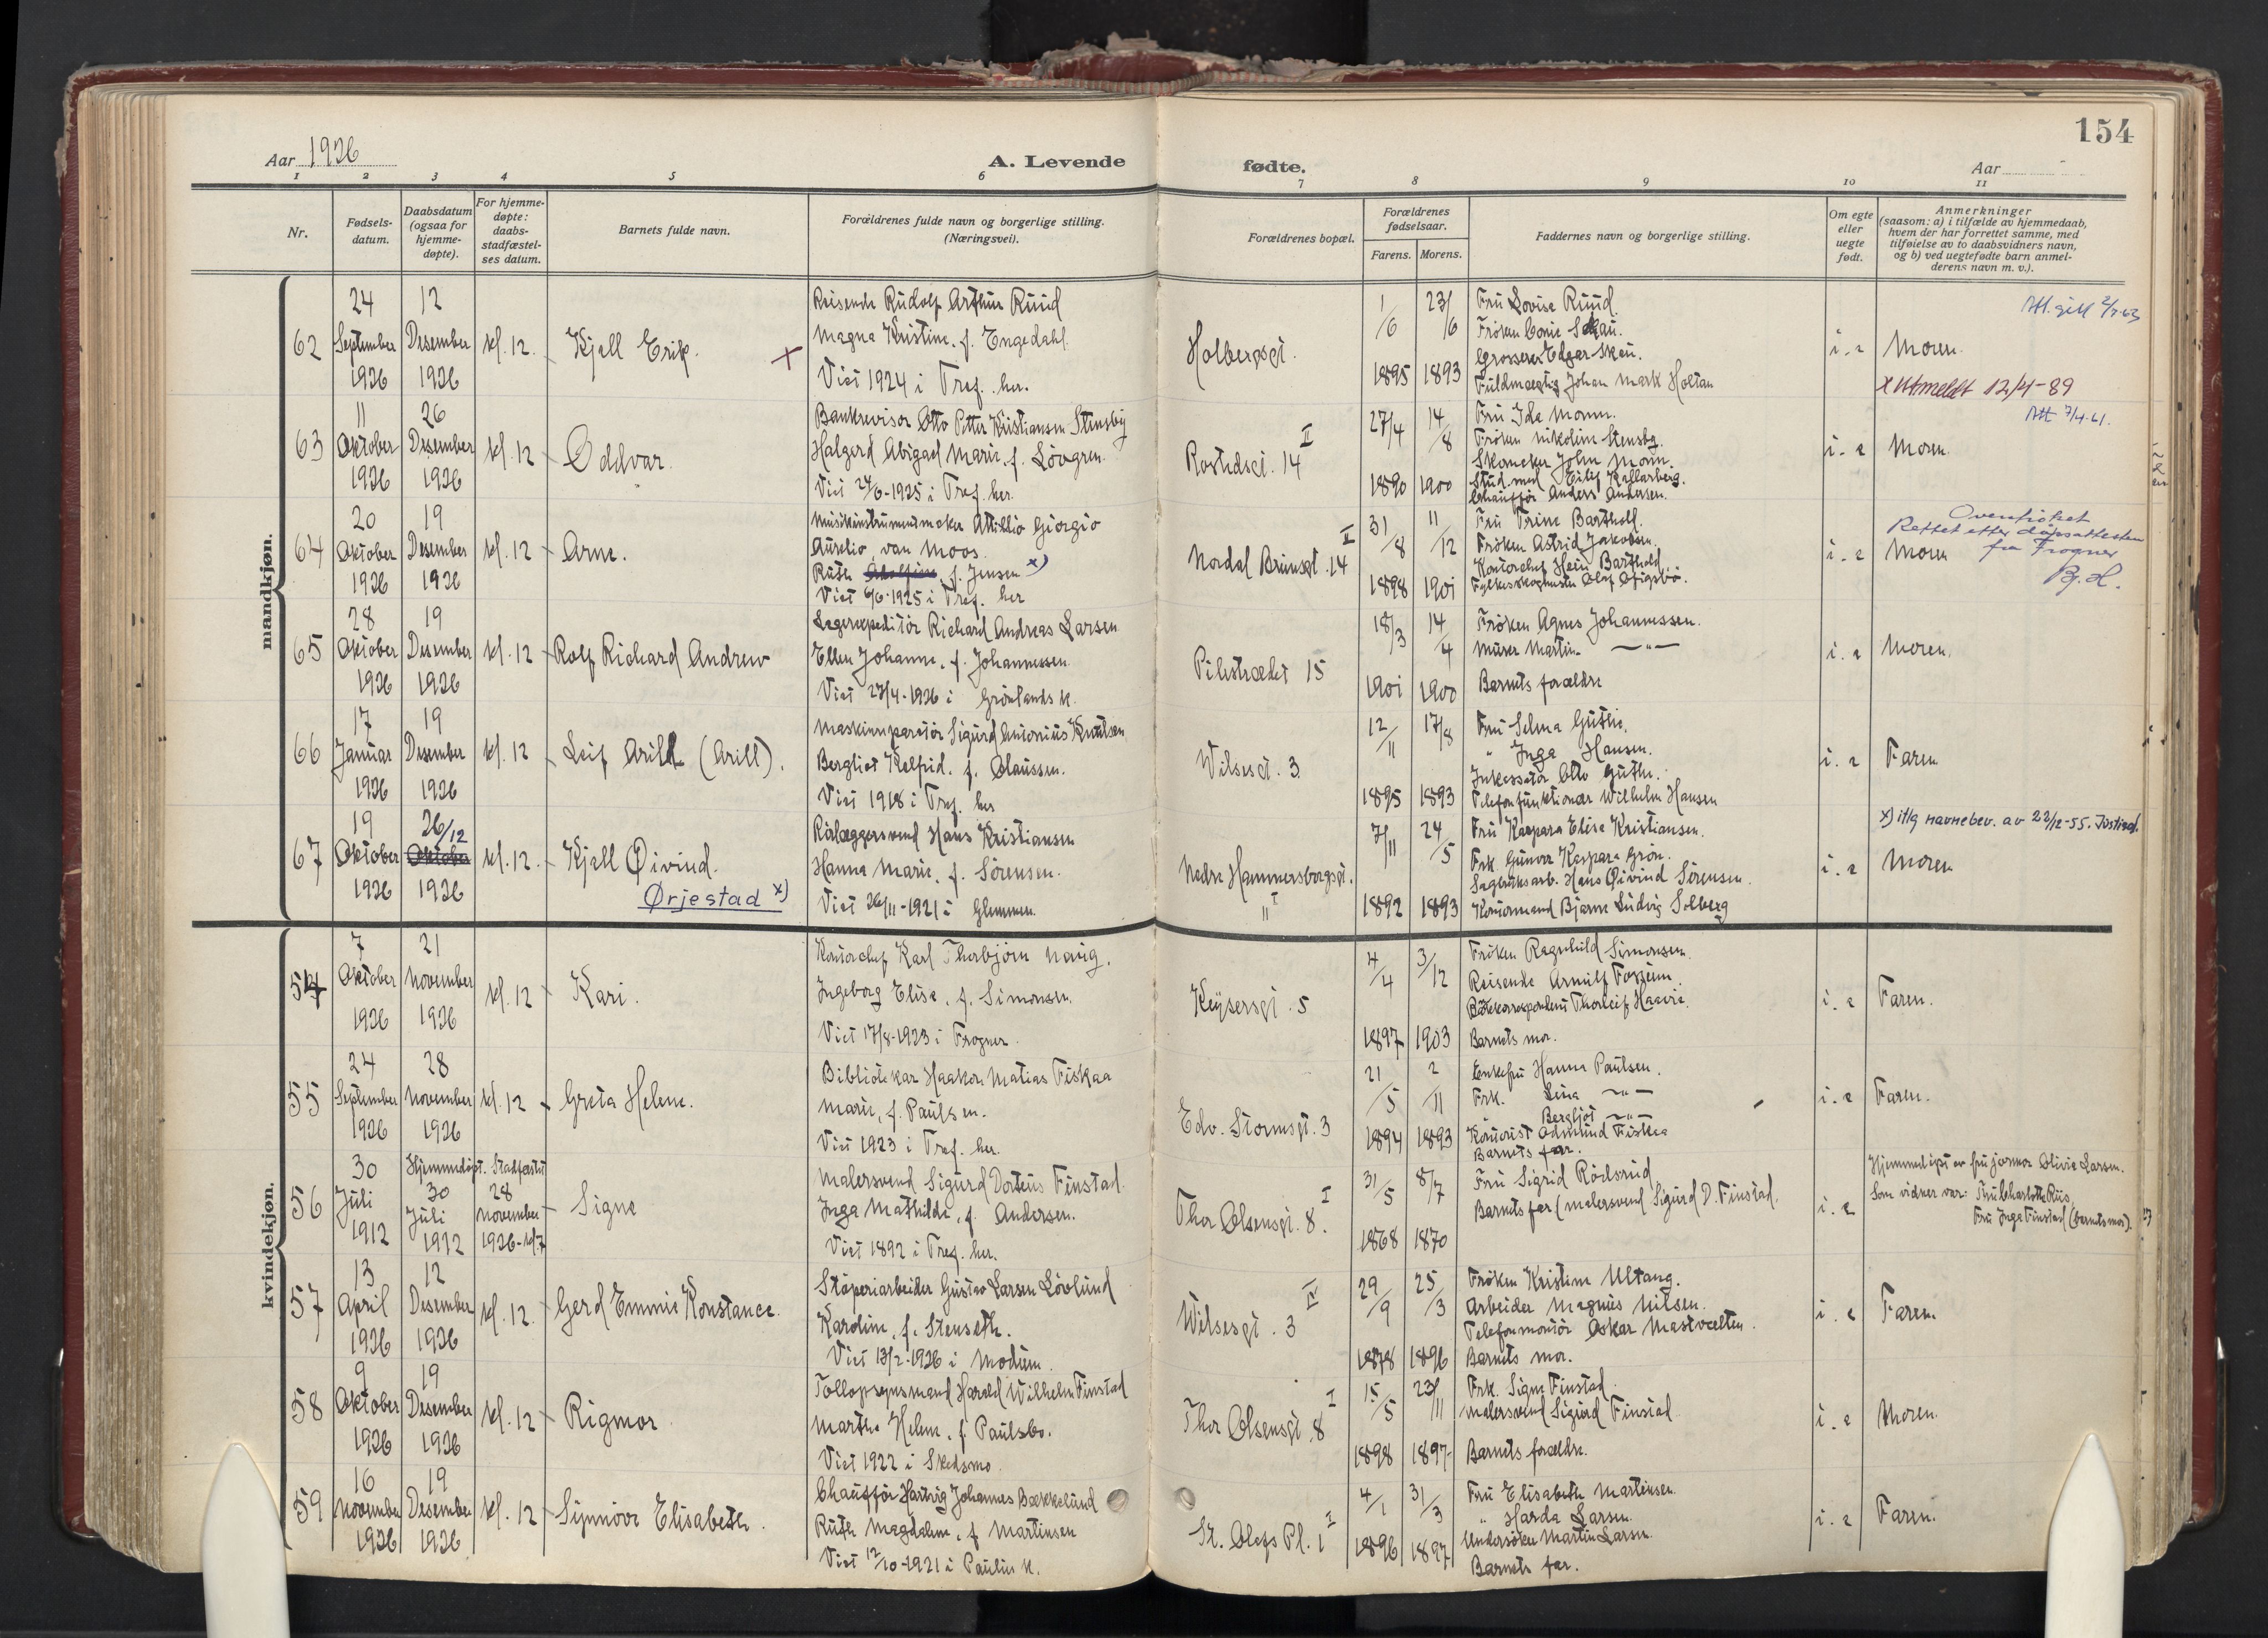 154
Aar 1926
A. Levende
fødte.
Aar
1 2 3 4 5 6 7 8 9 10 11
Nr.
Fødsels-
datum.
Daabsdatum
(ogsaa for
hjemme-
døpte).
For hjemme-
døpte:
daabs-
stadfæstel-
ses datum.
Barnets fulde navn.
Forældrenes fulde navn og borgerlige stilling.
(Næringsvei).
Forældrenes bopæl.
Forældrenes
fødselsaar.
Farens. Morens.
Faddernes navn og borgerlige stilling.
Om egte
eller
uegte
født.
Anmerkninger
(saasom: a) i tilfælde av hjemmedaab,
hvem der har forrettet samme, med
tilføielse av to daabsvidners navn,
og b) ved uegtefødte barn anmel-
derens navn m. v.).
mandkjøn.
62
24
September
1926
12
Desember
1926
kl. 12
Kjell Erik.
x
Reisende Rudolf Arthur Ruud
Magna Kristine, f. Engedahl
Viet 1924 i Tref. her.
Holbergsgt.
1/6
1895
23/6
1893
Fru Lovise Ruud.
Frøken Skau.
Grosserer Edgar Skau.
Fuldmægtig Johan Mark Holtan
i. e
Moren.
x Utmeldt 12/4-89
63
11
Oktober
1926
26
Desember
1926
kl. 12
Oddvar.
Bankrevisor Otto Petter Kristiansen Stensby
Halgerd Abigael Marie, f. Løvgren.
Viet 24/6-1925 i Tref. her.
Rostedsgt. 14 II
27/4
1890
14/8
1900
Fru Ida Monn.
Frøken Nikoline Stensby.
Skomaker John Monn.
Stud. med Eilif Kallarberg.
Chauffør Anders Andersen.
i. e
Moren
Att 7/4-61.
64
20
Oktober
1926
19
Desember
1926
kl. 12
Arne.
Musikinstrumentmaker Attillio Giorgio
Aurelio van Moos.
Ruth f. Jensen x)
Viet 6/6-1925 i Tref. her
Nordal Brunsgt. 14 II
31/8
1898
11/12
1901
Fru Trine Barthold.
Frøken Astrid Jakobsen.
Kontorchef Hein Barthold.
i. e
Moren
Rettet etter dåpsattesten
fra Frogner
65
28
Oktober
1926
19
Desember
1926
kl. 12
Rolf Richard Andrew
Lagerexpeditør Richard Andreas Larsen
Ellen Johanne, f. Johannessen.
Viet 27/4-1926 i Grønlands k.
Pilestrædet 15
18/3
1901
14/4
1900
Frøken Agnes Johannessen.
Murer Martin —"—
Barnets forældre
i. e
Moren.
66
17
Januar
1926
19
Desember
1926
kl. 12
Leif Arild (Arill).
Maskinreparatør Sigurd Antonius Knutsen
Bergliot Kelfrid, f. Olaussen.
Viet 1918 i Tref. her
Wilsesgt. 3
12/11
1895
17/8
1893
Fru Selma Guthe.
" Inga Hansen.
Inkassator Otto Guthe.
Telefonfunktionær Wilhelm Hansen
i. e
Faren
67
19
Oktober
1926
26/12
Oktober
1926
kl. 12.
Kjell Øivind.
Ørjestad x)
Rørlæggersvend Hans Kristiansen
Hanna Marie, f. Sørensen.
Viet 26/11-1921 i Glemmen.
Nedre Hammersborggt.
11 I
7/11
1892
24/5
1893
Fru Kaspara Elise Kristiansen.
Frk. Gunvor Kaspara Grøn.
Sagbruksarb. Hans Øivind Sørensen.
Kontormand Bjarne Ludvig Solberg
i. e
x) iflg navnebev. av 22/12-55. Justisd.
Moren
kvindekjøn.
54
7
Oktober
1926
21
November
1926
kl. 12
Kari.
Kontorchef Karl Thorbjørn Navig.
Ingeborg Elise, f. Simonsen.
Viet 17/8-1923 i Frogner.
Keysersgt. 5
4/4
1897
3/12
1903
Frøken Ragnhild Simonsen.
Reisende Arnulf Fossum.
Thorleif Haavie.
Barnets mor.
i. e
Faren.
55
24
September
1926
28
November
1926
kl. 12
Greta Helene.
Bibliotekar Haakon Matias Fiskaa
Marie, f. Paulsen.
Viet 1923 i Tref. her.
Edv. Stormsgt. 3
21/5
1894
2/11
1893
Enkefru Hanna Paulsen.
Frk. Lina —"—
Bergljot —"—
Kontorist Edmund Fiskaa
Barnets far.
i. e
Faren.
56
30
Juli
1912
Hjemmedøpt. Stadfæstet
30
Juli
1912
28
November
1926-kl 7
Signe
Malersvend Sigurd Dorteus Finstad.
Inga Mathilde, f. Andersen.
Viet 1892 i Tref. her.
Thor Olsensgt. 8. I
31/5
1868
8/7
1870
Fru Sigrid Rødsrud
Barnets far (malersvend Sigurd D. Finstad.
i. e
Hjemmedøpt av fru jormor Olivie Larsen.
Som vidner var: Fru Charlotte Riis,
Fru Inga Finstad (barnets mor).
57
13
April
1926
12
Desember
1926
kl. 12.
Gerd Emmie Konstance.
Støperiarbeider Gustav Larsen Løvlund
Karoline, f. Stenseth.
Viet 13/2-1926 i Modum.
Wilsesgt. 3 IV
29/9
1878
25/3
1896
Frøken Kristine Ultang.
Arbeider Magnus Nilsen.
Telefonmontør Oskar Mastvælten.
Barnets mor.
i. e
Faren.
58
9
Oktober
1926
19
Desember
1926
kl. 12
Rigmor
Tollopsynsmand Harald Wilhelm Finstad
Marthe Helene, f. Paulsbo.
Viet 1922 i Skedsmo.
Thor Olsensgt. 8 I
15/5
1898
23/11
1897
Frk. Signe Finstad.
Malersvend Sigurd Finstad
Barnets forældre.
i. e
Moren.
59
16
November
1926
19
Desember
1926
kl. 12
Synnøve Elisabeth.
Chauffør Hartvig Johannes Bækkelund
Ruth Magdalene, f. Martinsen
Viet 12/10-1921 i Paulus k.
St. Olafs Pl. 1 I
4/1
1896
31/3
1897
Fru Elisabeth Martinsen.
" Harda Larsen.
Undersøker Martin Larsen.
Barnets far.
i. e
Faren.